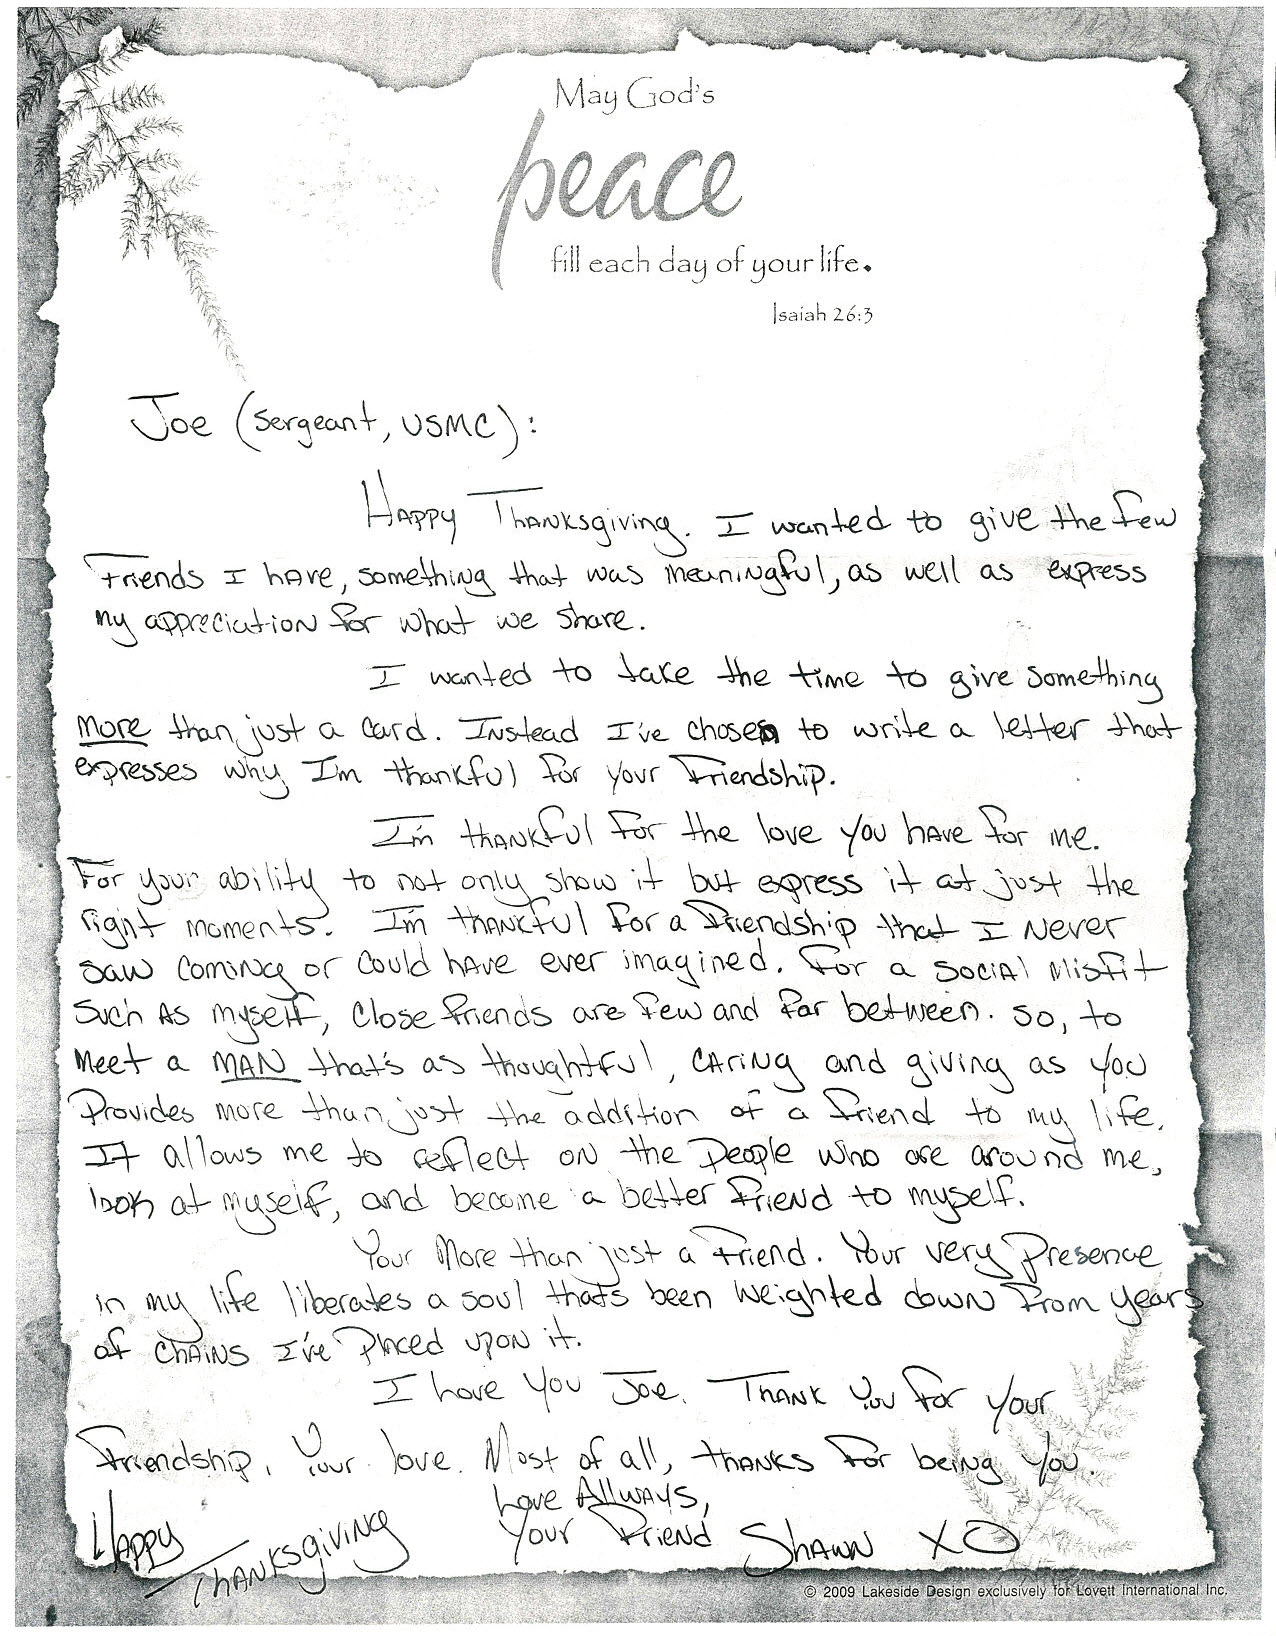 May God's
peace
fill each day of your life.
Isaiah 26:3
Joe (Sergeant, USMC):
Happy Thanksgiving. I wanted to give the few
friends I have, something that was meaningful, as well as express
my appreciation for what we share.
I wanted to take the time to give something
more than just a card. Instead I've chosen to write a letter that
expresses why I'm thankful for your friendship.
I'm thankful for the love you have for me.
For your ability to not only show it but express it at just the
right moments. I'm thankful for a friendship that I never
saw coming or could have ever imagined. For a social misfit
such as myself, close friends are few and far between. So, to
meet a MAN that's as thoughtful, caring and giving as you
provides more than just the addition of a friend to my life.
It allows me to reflect on the people who are around me,
look at myself, and become a better friend to myself.
Your more than just a friend. Your very presence
in my life liberates a soul thats been weighted down from years
of chains I've placed upon it.
I love you Joe. Thank you for your
friendship. Your love. Most of all, thanks for being you.
Love Allways,
Your Friend Shawn XO
Happy
Thanksgiving
© 2009 Lakeside Design exclusively for Lovett International Inc.